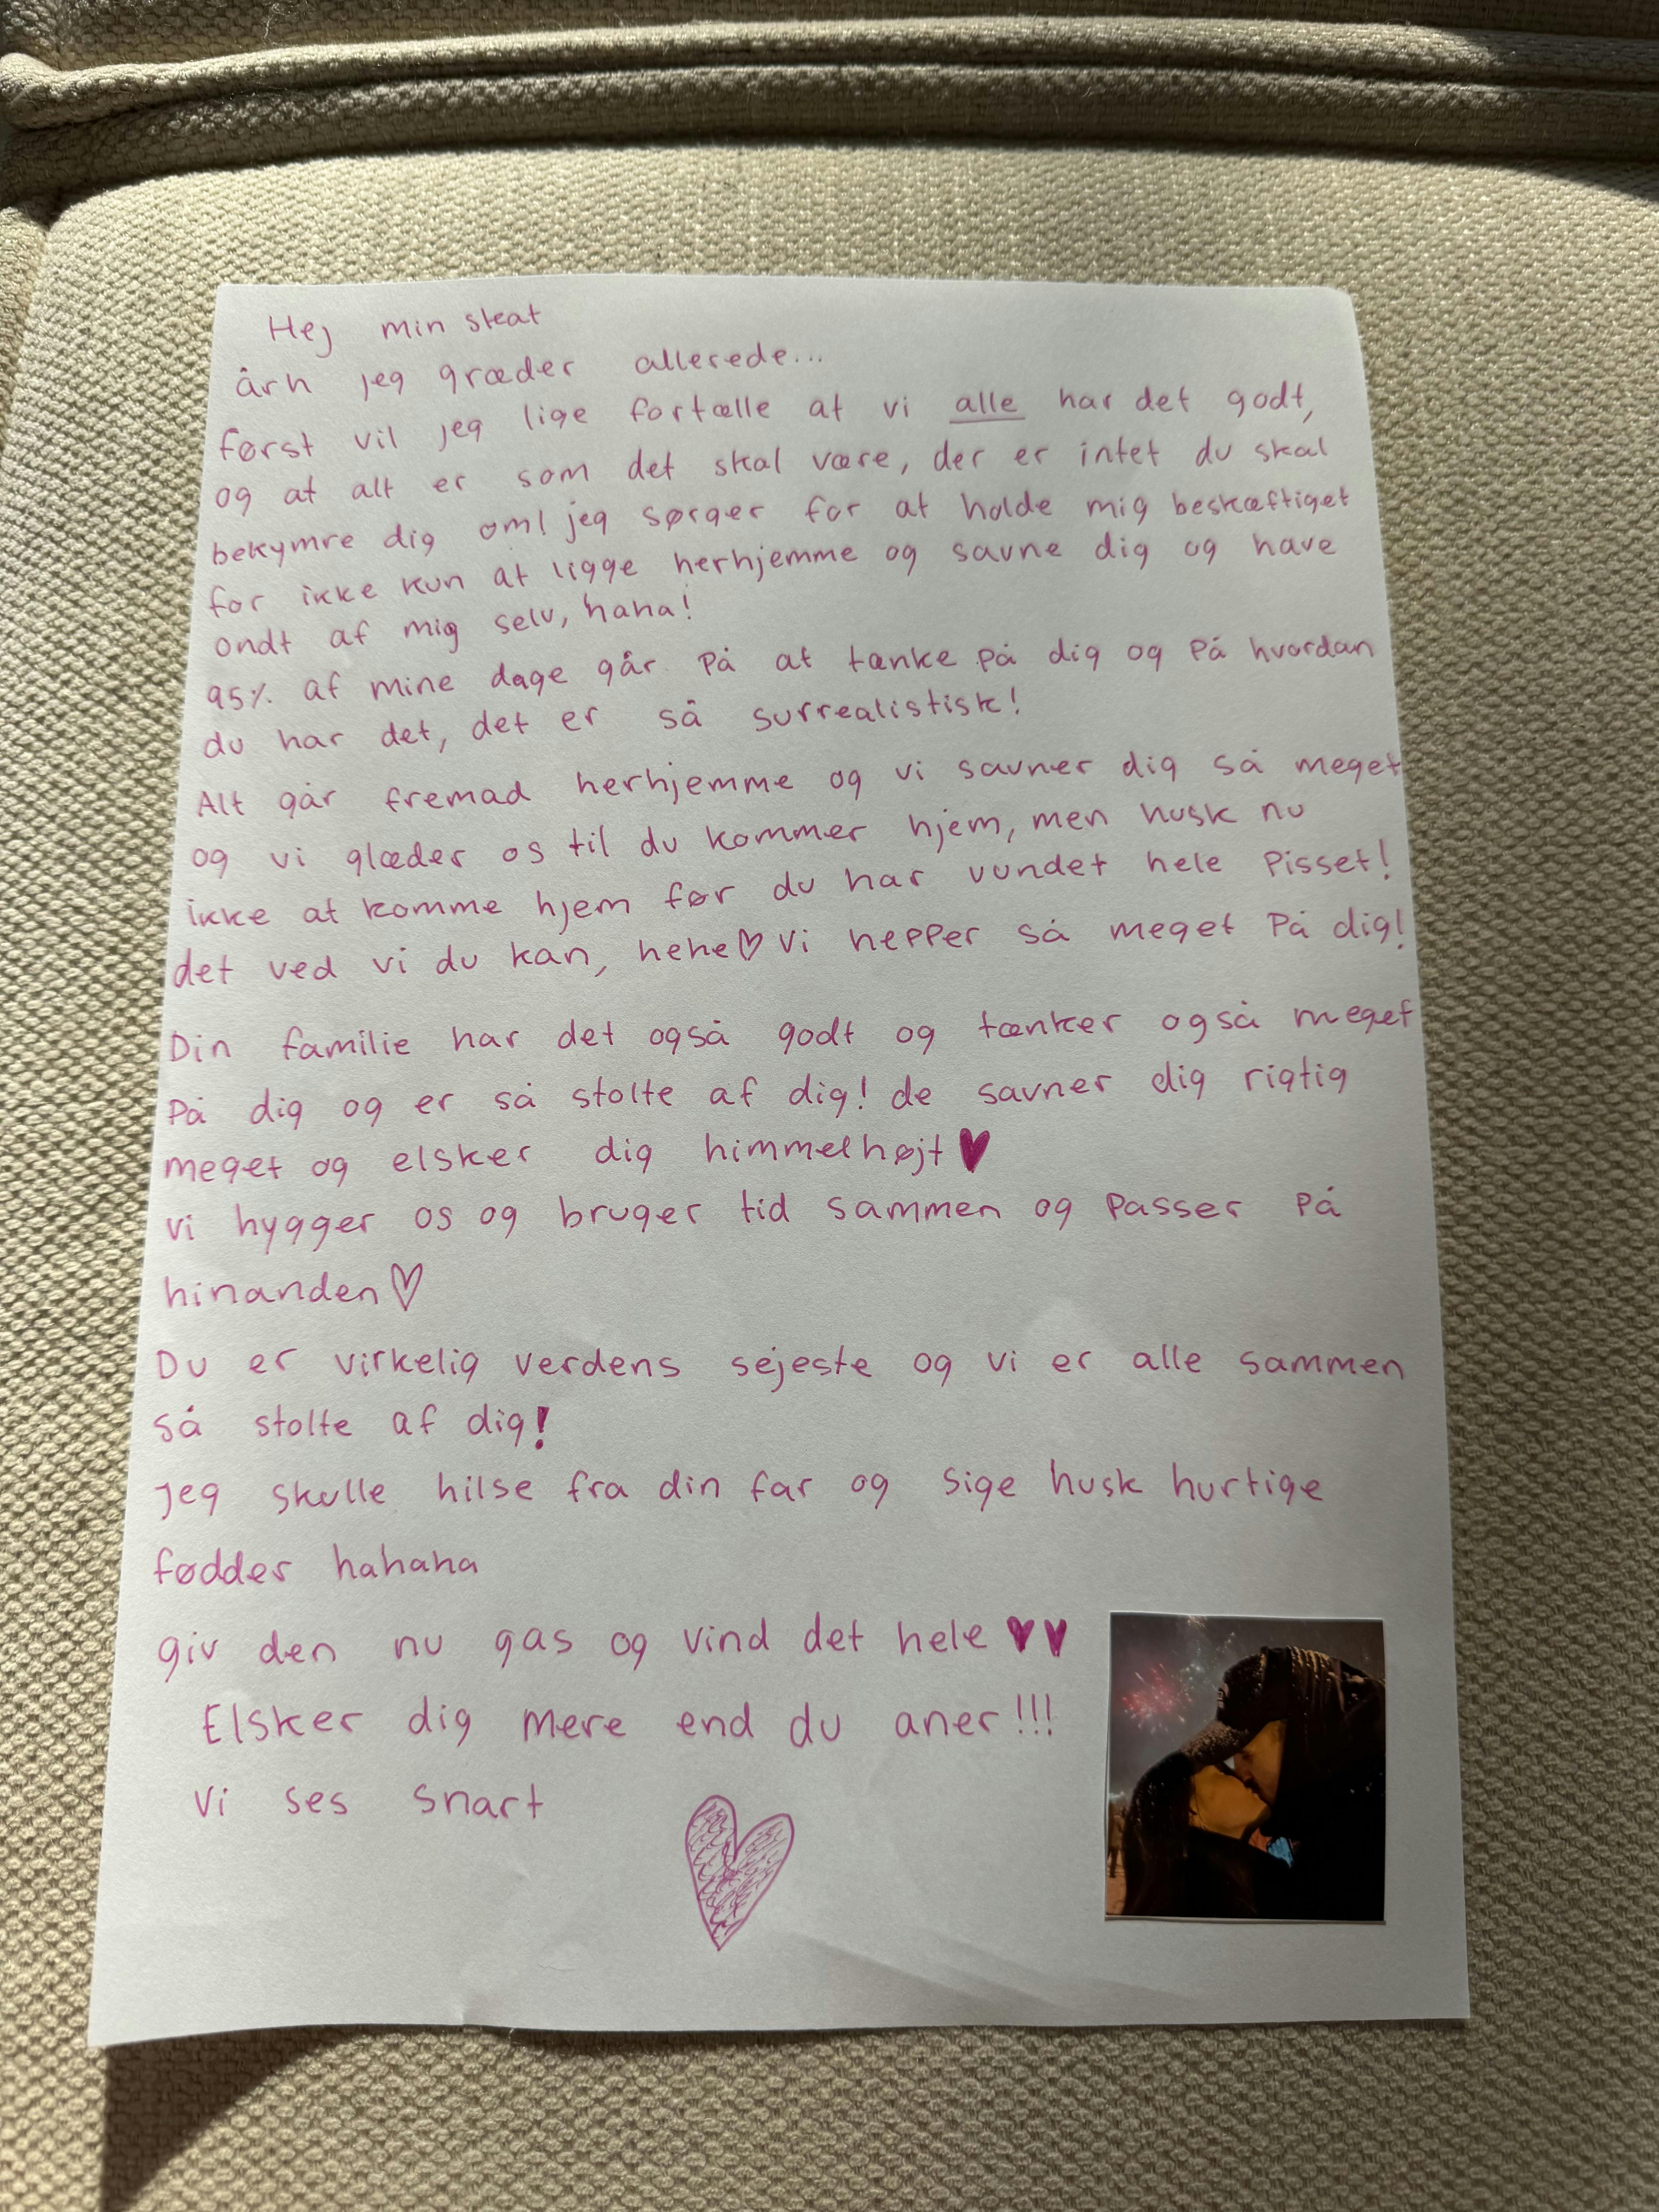 Hej min skat
årh jeg græder allerede...
først vil jeg lige fortælle at vi alle har det godt,
og at alt er som det skal være, der er intet du skal
bekymre dig om! jeg sørger for at holde mig beskæftiget
for ikke kun at ligge herhjemme og savne dig og have
ondt af mig selv, haha!
95% af mine dage går på at tænke på dig og på hvordan
du har det, det er så surrealistisk!
Alt går fremad herhjemme og vi savner dig så meget
og vi glæder os til du kommer hjem, men husk nu
ikke at komme hjem før du har vundet hele pisset!
det ved vi du kan, hehe♡ Vi hepper så meget på dig!
Din familie har det også godt og tænker også meget
på dig og er så stolte af dig! de savner dig rigtig
meget og elsker dig himmelhøjt♥
vi hygger os og bruger tid sammen og passer på
hinanden♡
Du er virkelig verdens sejeste og vi er alle sammen
så stolte af dig!
jeg skulle hilse fra din far og sige husk hurtige
fødder hahaha
giv den nu gas og vind det hele ♥♥
Elsker dig mere end du aner!!!
Vi ses snart